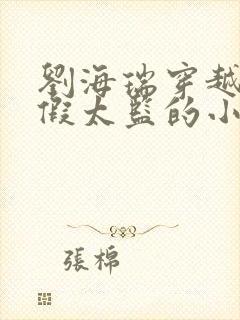 劉海瑞穿越
假太監的小
張棉